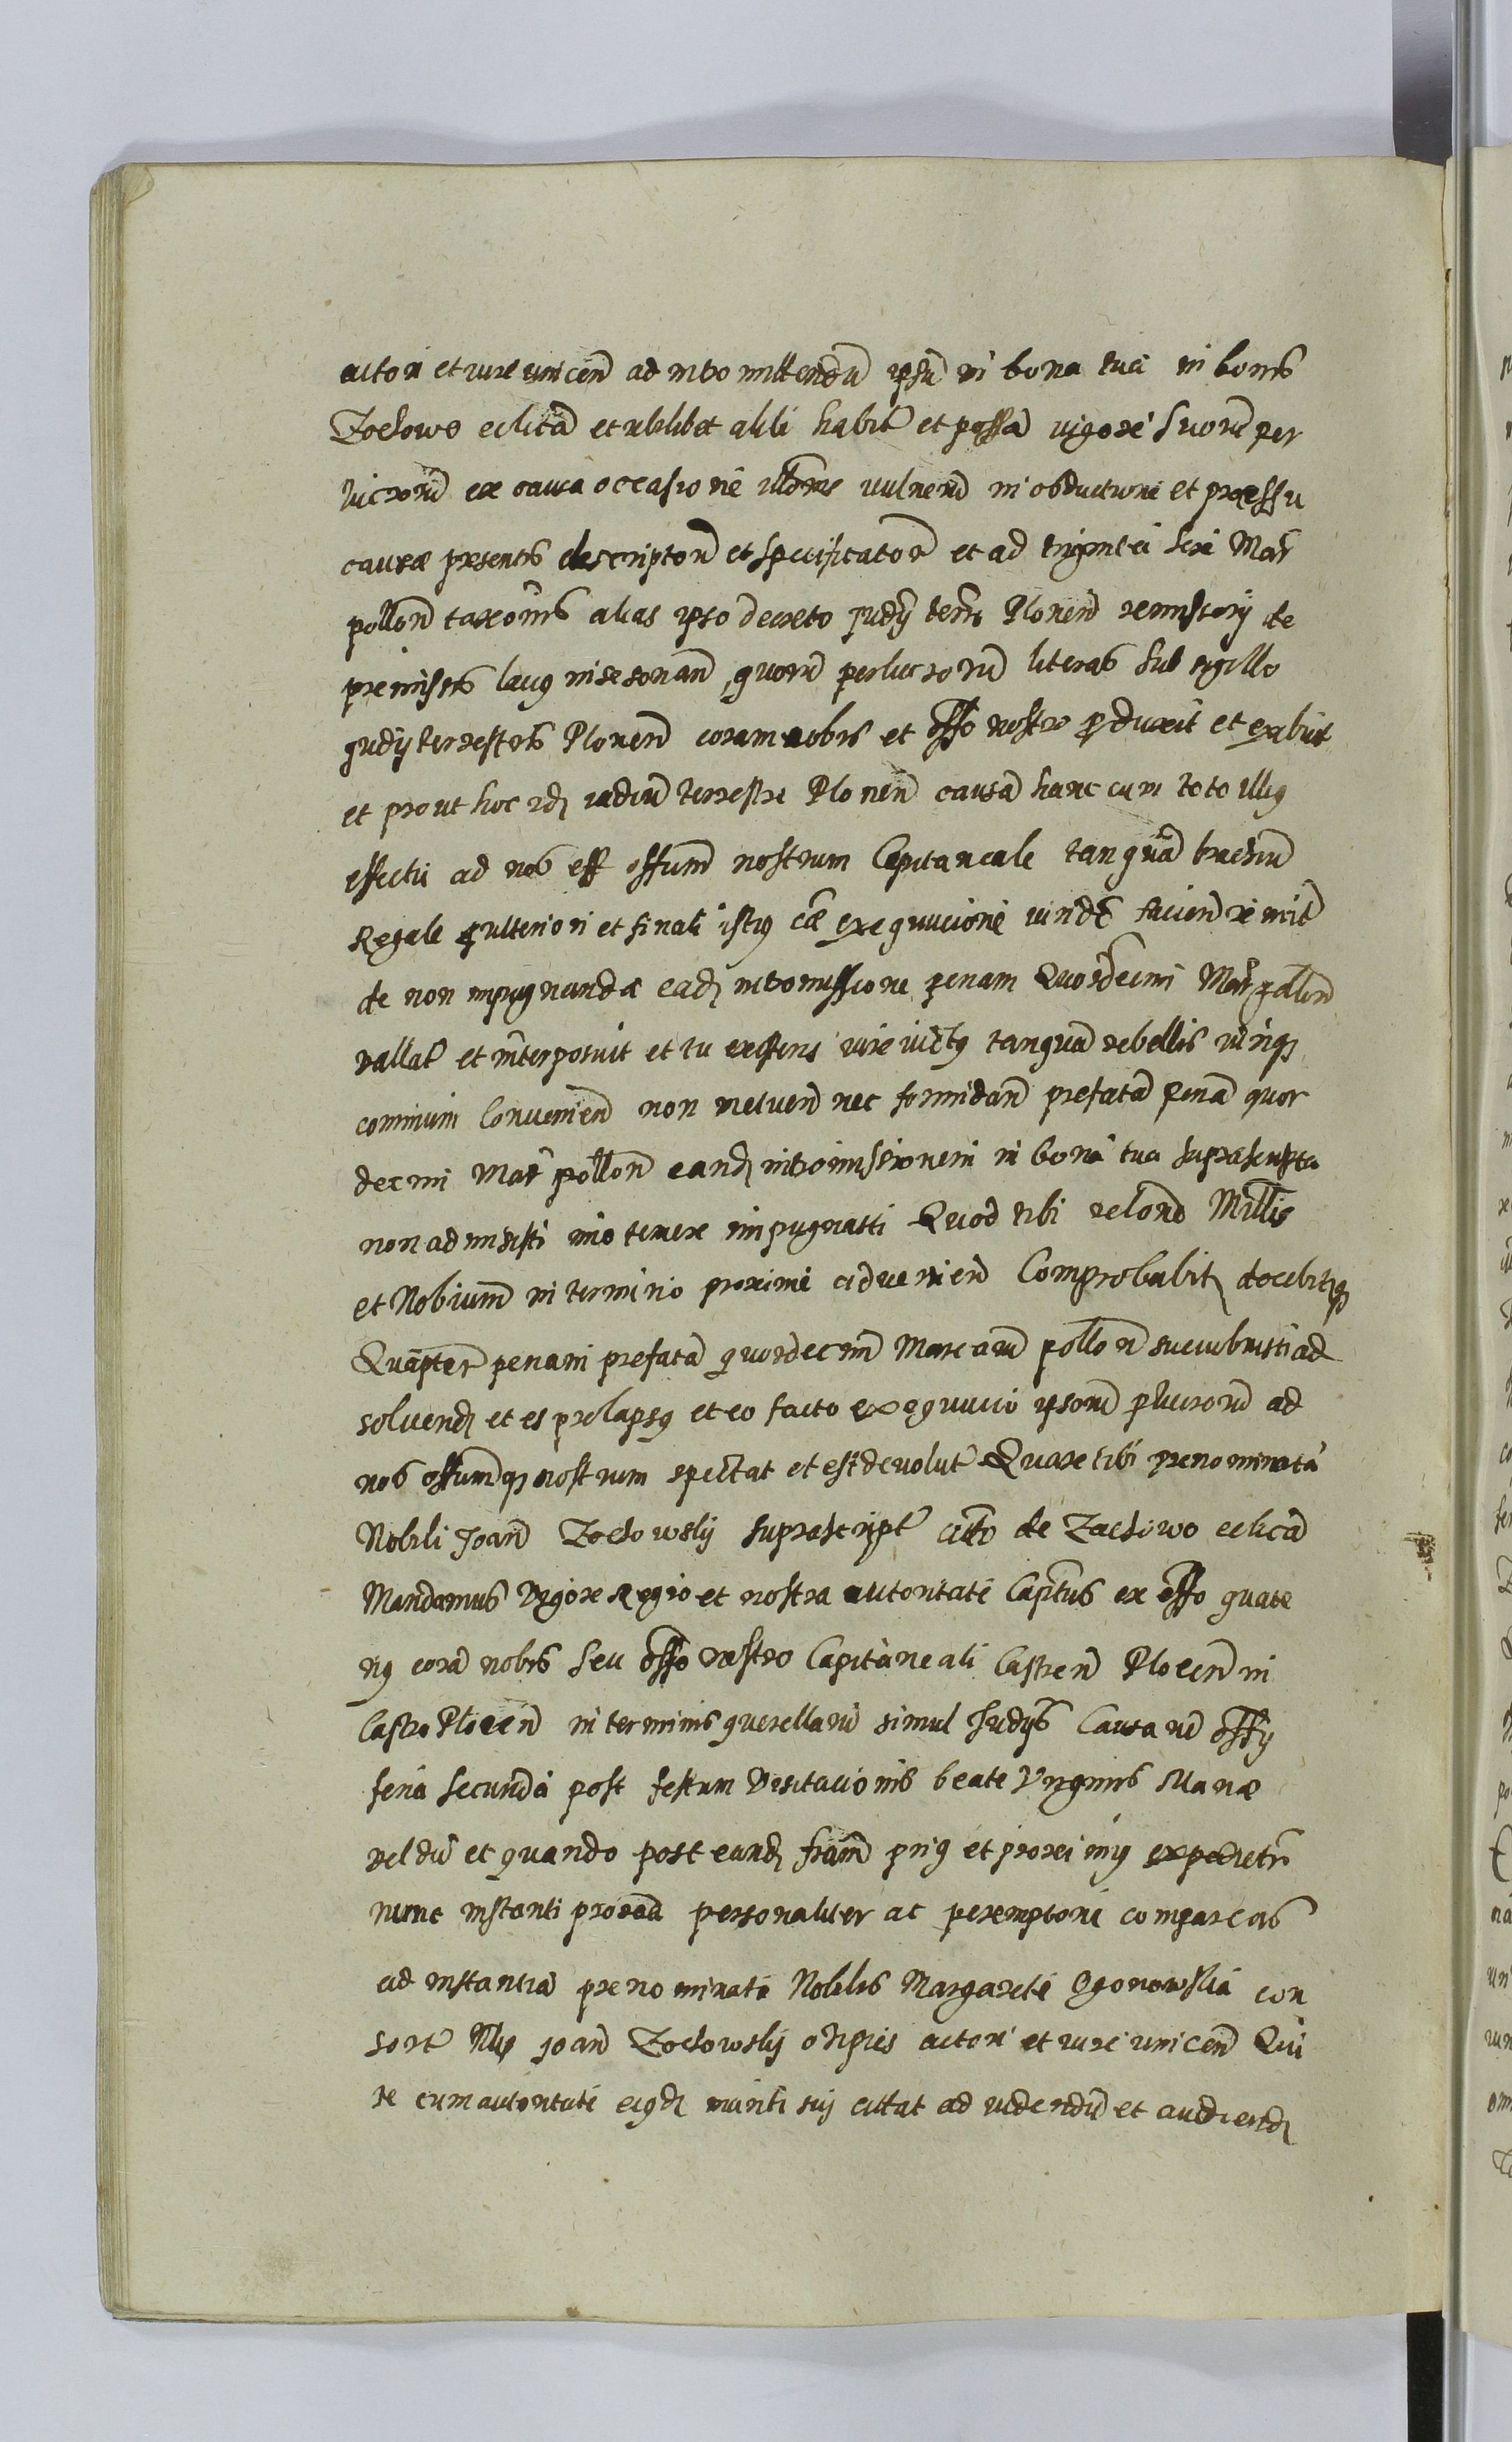 actori et iure vincen ad intromittendu ipsu in bona tua in bonis
Zochowo eclicta et ubilibet alibi habit et possa vigore suoru per
lucroru ex causa occasione illoru vulneru in obductione et processu
causæ presentis descriptoru et specificatoru et ad triginta sex Mar
pollon taxonis alias ipso decreto Judy terris Plonen remissory de
premissis laus insesonan, quoru perlucroru literas sub sigillo
Judy terrestris Plonen coram nobis et offo nostro produxit et exibuit
et prout hoc id iudiu terrestre Plonen causa hanc cum toto illius
effectu ad nos eff offium nostrum Capitaneale tanqua brachiu
Regale p ulteriori et finali istius cæ exequucione vinde facien remit
de non impugnanda ead intromissione penam Quordecim Mar pollon
vallat et interposuit et tu existens iure victus tanqua rebellis iurisq
comuni Convenien non metuen nec formidan prefata pena quor
decim Mar pollon eand intromissionem in bona tua suprascripta
non admisisti imo temere impugnasti Quod tibi relone Minlis
et Nobiium in termino proxime advenien Comprobabit docebitq
Quapter penam prefata quordecim Marcaru pollon succubuisti ad
solvend et es prolapsus et eo facto exequucio ipsoru pluciroru ad
nos offiumq nostrum spectat et est devolut Quare tibi prenominata
Nobili Joan Zochowsky suprascript cito de Zachowo eclica
Mandamus Vigore Regio et nostra autoritate Capitus ex offo quate
nus cora nobis seu offo nostro Capitaneali Castren Plocen in
Castro Plocen in terminis querellaru simul Judys Causaru offy
feria secunda post festum Visitacionis beate Virginis Mariæ
vel du et quando post eund fram prius et proximius expedietr
nunc instanti procedd personaliter ac peremptorie compareas
ad instantia prenominata Nobilis Margarete Ogonowska con
sort Nlis Joan Zochowsky actori et iure vincen Qui
te cum autoritate eiusd mariti sui cittat ad videndu et audiend